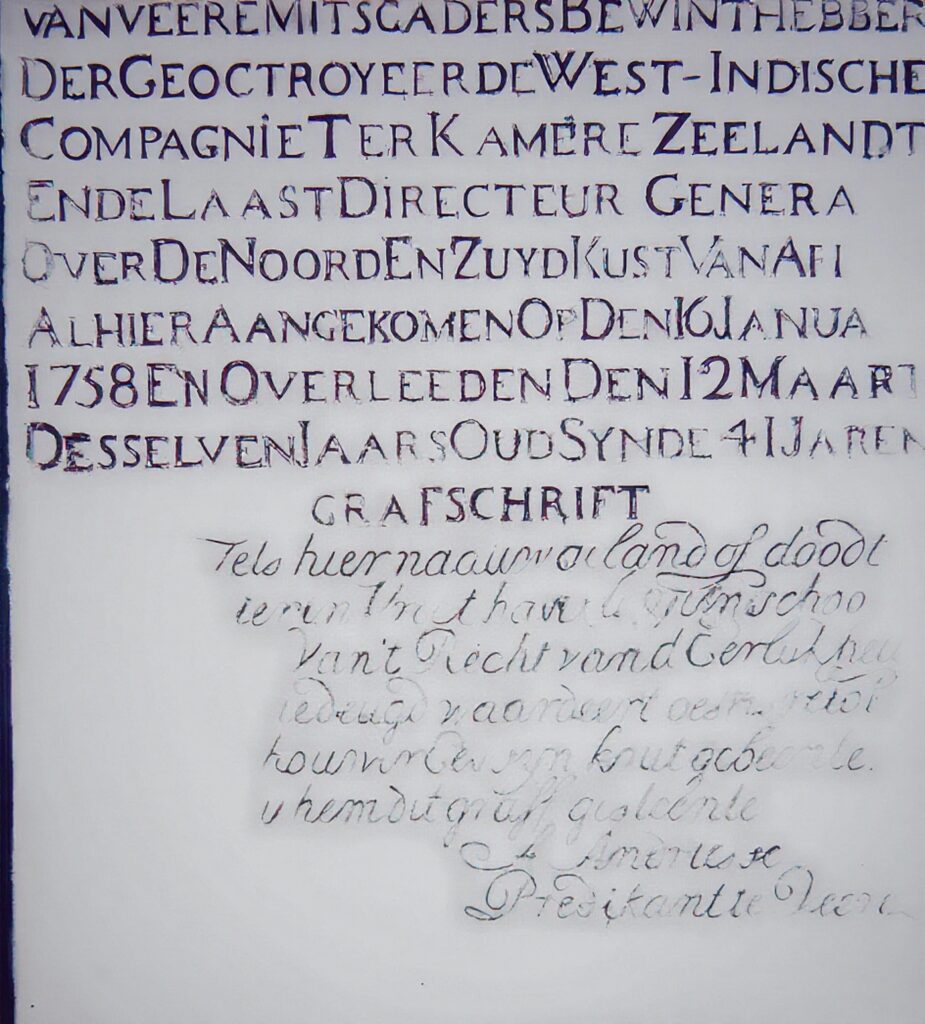 VAN VEERE MITSGADERS BEWINTHEBBER
DER GEOCTROYEERDE WEST-INDISCHE
COMPAGNIE TER KAMERE ZEELANDT
ENDE LAAST DIRECTEUR GENERA
OVER DE NOORD EN ZUYD KUST VAN AFI
ALHIER AANGEKOMEN OP DEN 16 JANUA
1758 EN OVERLEEDEN DEN 12 MAART
DESSELVEN JAARS OUD SYNDE 41 JAREN
GRAFSCHRIFT
Tels hier naauw land of doodt
Van't Recht van d'Eerlyk
deugd waardeert
zyn kout gebeente.
u hem dit graff gesteente
Andriesse
Predikant te Veere